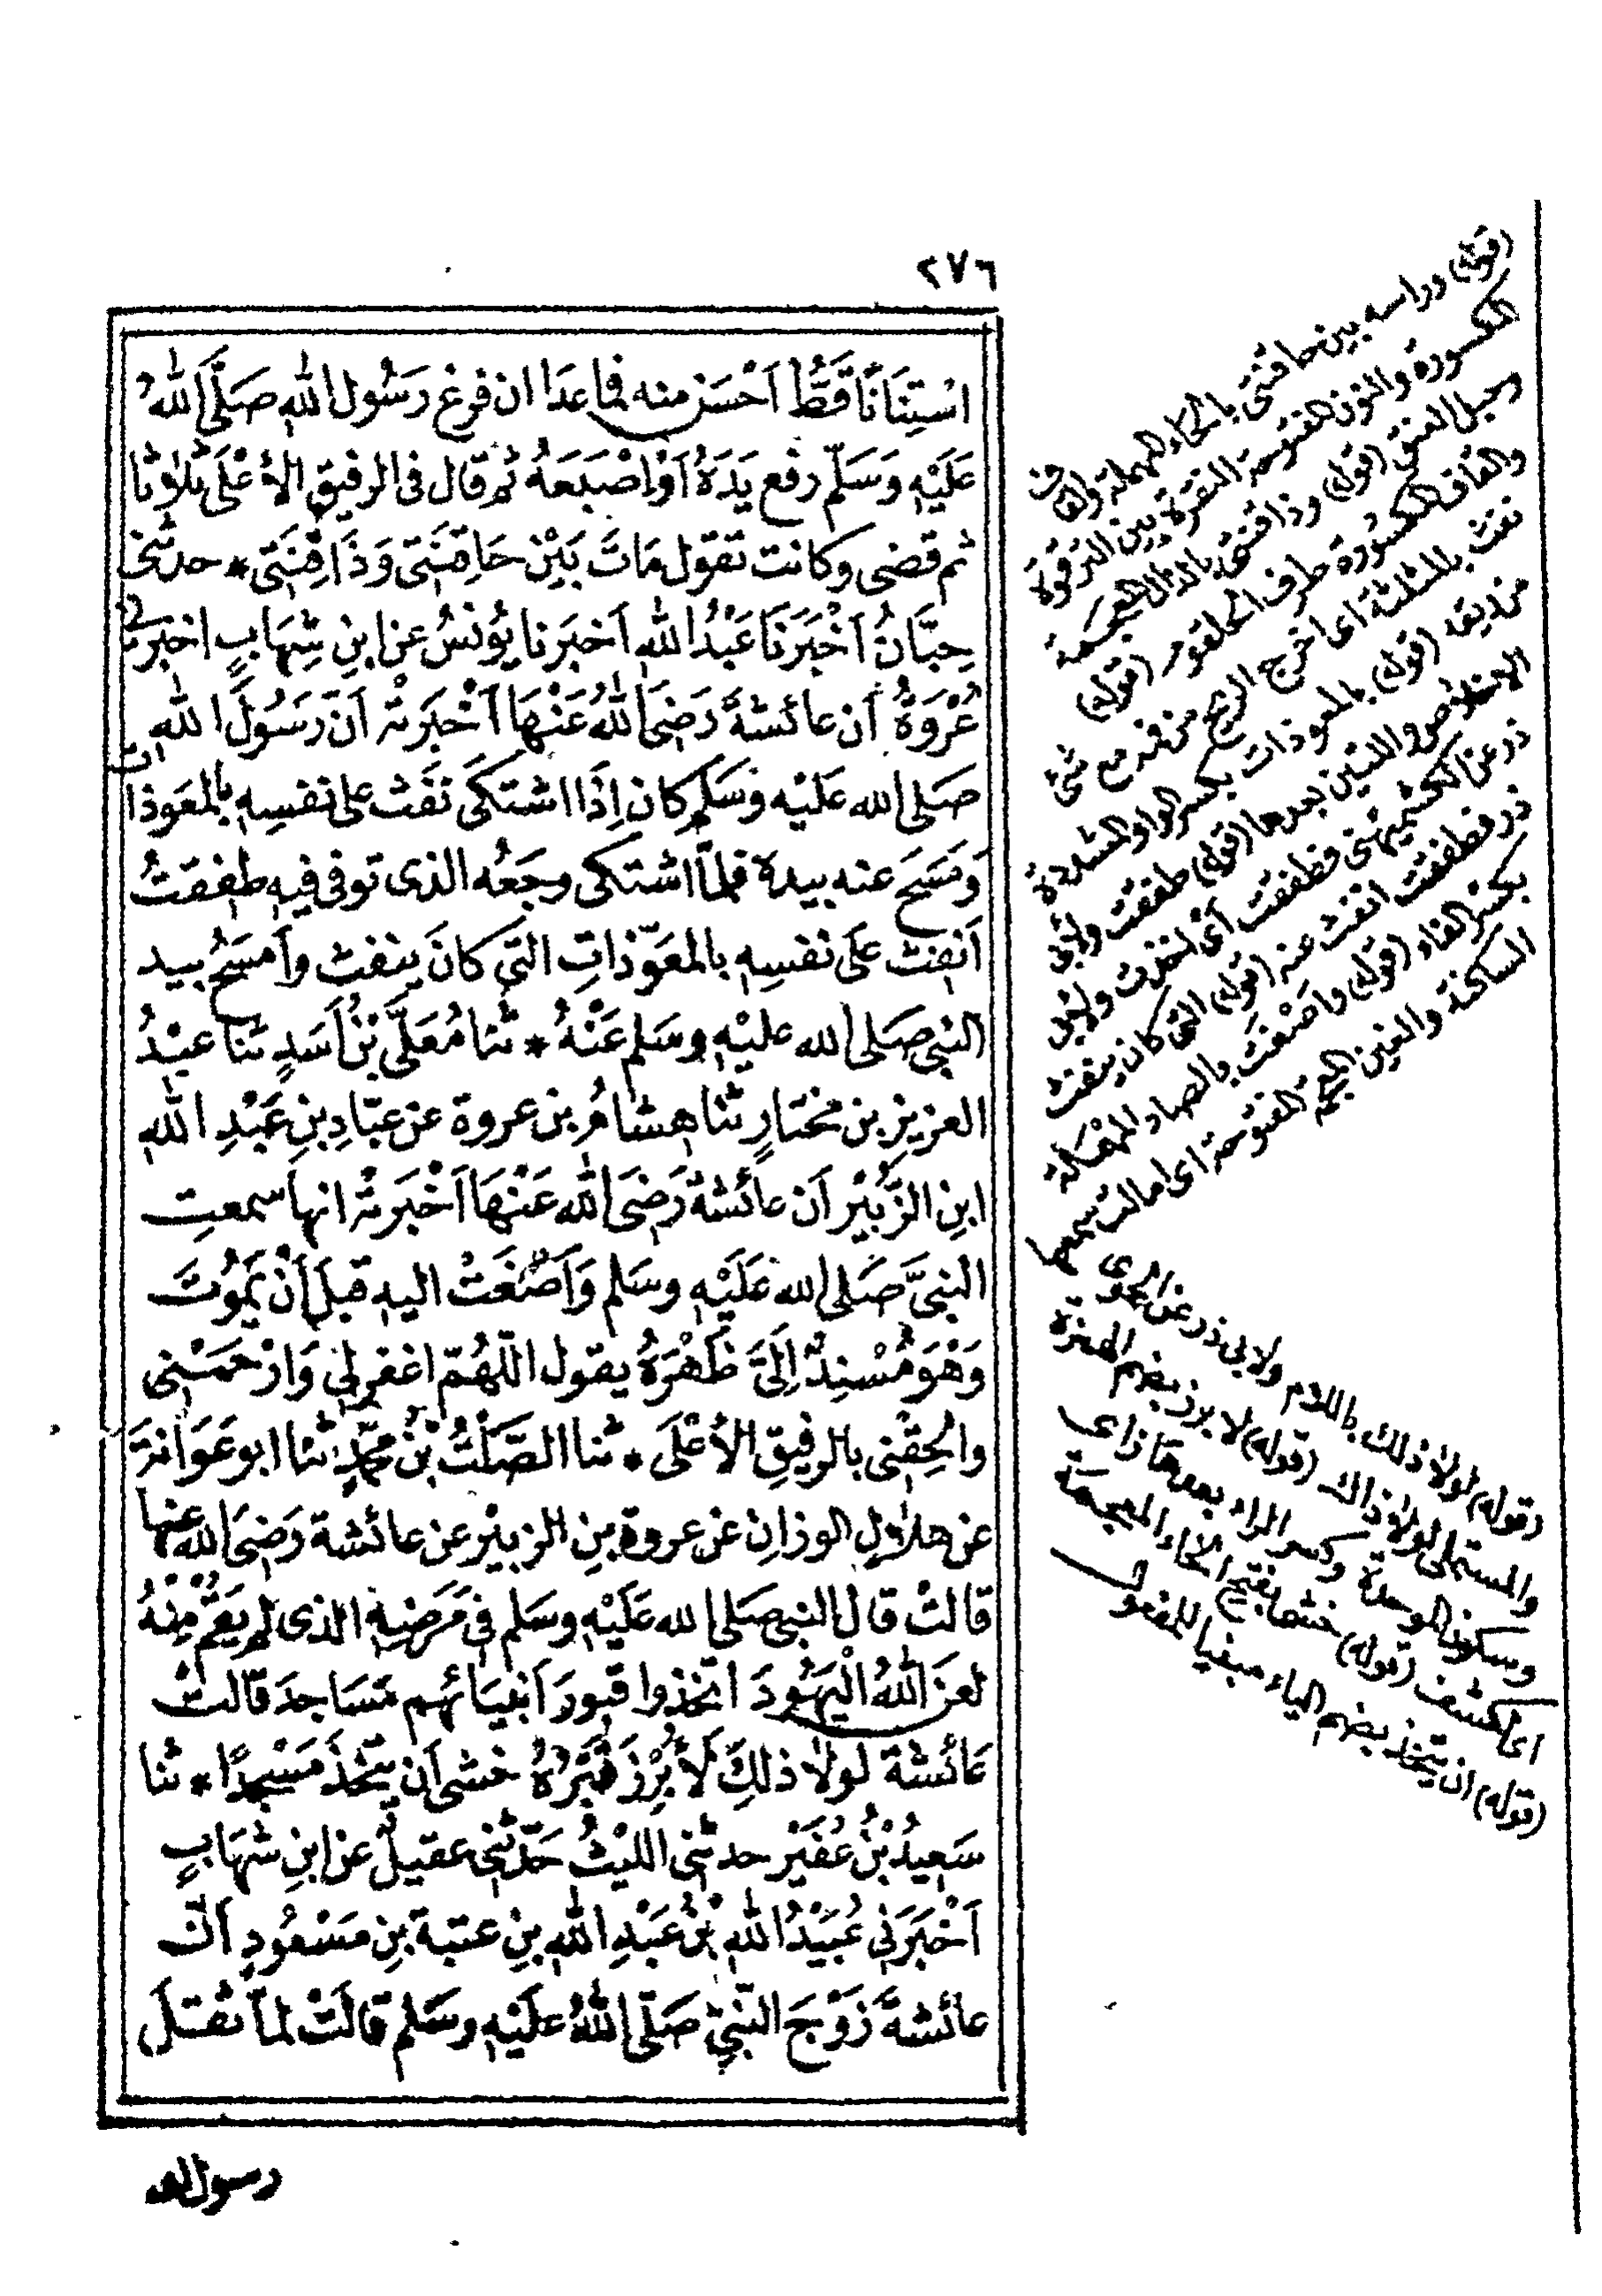 ٢٧٦
اسْتِنَانًا قَطُّ اَحْسَنَ منه فما عدَا ان فرغ رَسُول اللهِ صَلَّى اللهُ
عَلَيْهِ وَسَلَّم رفع يَدَهُ اَوْ اِصْبَعَهُ ثم قال فى الرفيقِ الأعْلَى ثلاثا
ثم قضى وكانت تقول مَاتَ بَيْنَ حَاقِنَتى وَذَاقِنَتى * حدثنى
حِبَّانُ اَخْبَرَنَا عَبْدُ اللهِ اَخبَرنا يُونسُ عن ابنِ شِهَابٍ اخبرنى
عُرْوَةُ اَن عائشةَ رَضِىَ اللهُ عَنْهَا اَخْبَرَتْه اَنّ رَسُولَ اللهِ
صَلى الله عَليْه وَسَلم كان اِذَا اشتكَى نَفَث على نفسِهِ بالمعَوذات
وَمَسَحَ عنه بيده فلمّا اشتكى وجَعُه الذى توفى فيهِ طفقتُ
اَنفِث عَلى نفسِهِ بالمعَوّذاتِ التى كانَ ينفث واَمسَحُ بيد
النبى صَلى الله عليْهِ وسَلم عَنْهُ * ثنا مُعَلَّى بْنُ اَسَدٍ ثنا عبْدُ
العزيزِ بن مختارٍ ثنا هشامُ بن عروة عن عبّادِ بنِ عَبْدِ اللهِ
ابنِ الزُّبَيْر اَن عائشة رَضِىَ الله عَنْهَا اَخْبَرَتْهُ انها سمعتِ
النبىَّ صَلى الله عَلَيْهِ وسَلم وَاَصْغَتْ اليهِ قبلَ اَنْ يَمُوتَ
وَهْوَ مُسْنِدٌ اِلَىَّ ظَهْرَهُ يقول اللّهُمّ اغفرلى وَارْحَمْنِى
والحِقْنى بالرفيقِ الأعْلَى * ثنا الصَّلْتُ بْنُ محمّدٍ ثنا ابو عَوَانةَ
عن هلالٍ الوزانِ عن عروة بنِ الزبيْر عن عائشة رَضىَ الله عنها
قالتْ قال النبى صَلى الله عَلَيْهِ وسَلم فى مَرَضِهِ الذى لم يَقُمْ مِنْهُ
لعنَ اللهُ الْيَهُودَ اتخذوا قبورَ اَنبيَائهم مَسَاجدَ قالت
عَائشة لولا ذلكَ لَأُبْرِزَ قَبْرُهُ خشى اَن يتّخذَ مَسْجدًا * ثنا
سَعِيدُ بْنُ عُفَيْرٍ حدثنى الليْثُ حَدّثنى عقيلٌ عن ابنِ شهَابٍ
اَخْبَرَنى عُبَيْدُ اللهِ بْنُ عَبْدِ اللهِ بنِ عتبة بنِ مَسْعُودٍ اَنّ
عائشةَ زَوْجَ النّبىِّ صَلّى اللهُ عليْهِ وسَلم قالَتْ لمّا ثقلَ
رسول الله
(قوله) وراسه بين حاقنتى بالحاء المهملة والقاف
المكسورة والنون المفتوحة النقرة بين الترقوة
وحبل العنق (قوله) وذاقنتى بالذال المعجمة
والقاف المكسورة طرف الحلقوم (قوله)
نفث بالمثلثة اى اخرج الريح من فمه مع شئ
من ريقه (قوله) بالمعوذات بكسر الواو المشددة
الاخلاص واللتين بعدها (قوله) طفقت ولأبى
ذر عن الكشميهنى فطفقت أى اخذت ولأبى
ذر فطفقت انفث عنه (قوله) التى كان ينفث
بكسر الفاء (قوله) واصغت بالصاد المهملة
الساكنة والغين المعجمة المفتوحة اى امالت سمعها
(قوله) لولا ذلك باللام ولابى ذر عن الحموى
والمستملى لولا ذاك (قوله) لابرز بضم الهمزة
وسكون الموحدة وكسر الراء بعدها زاى
اى لكشف (قوله) خشى بفتح الخاء المعجمة
(قوله) ان يتخذ بضم الياء مبنيا للمفعول